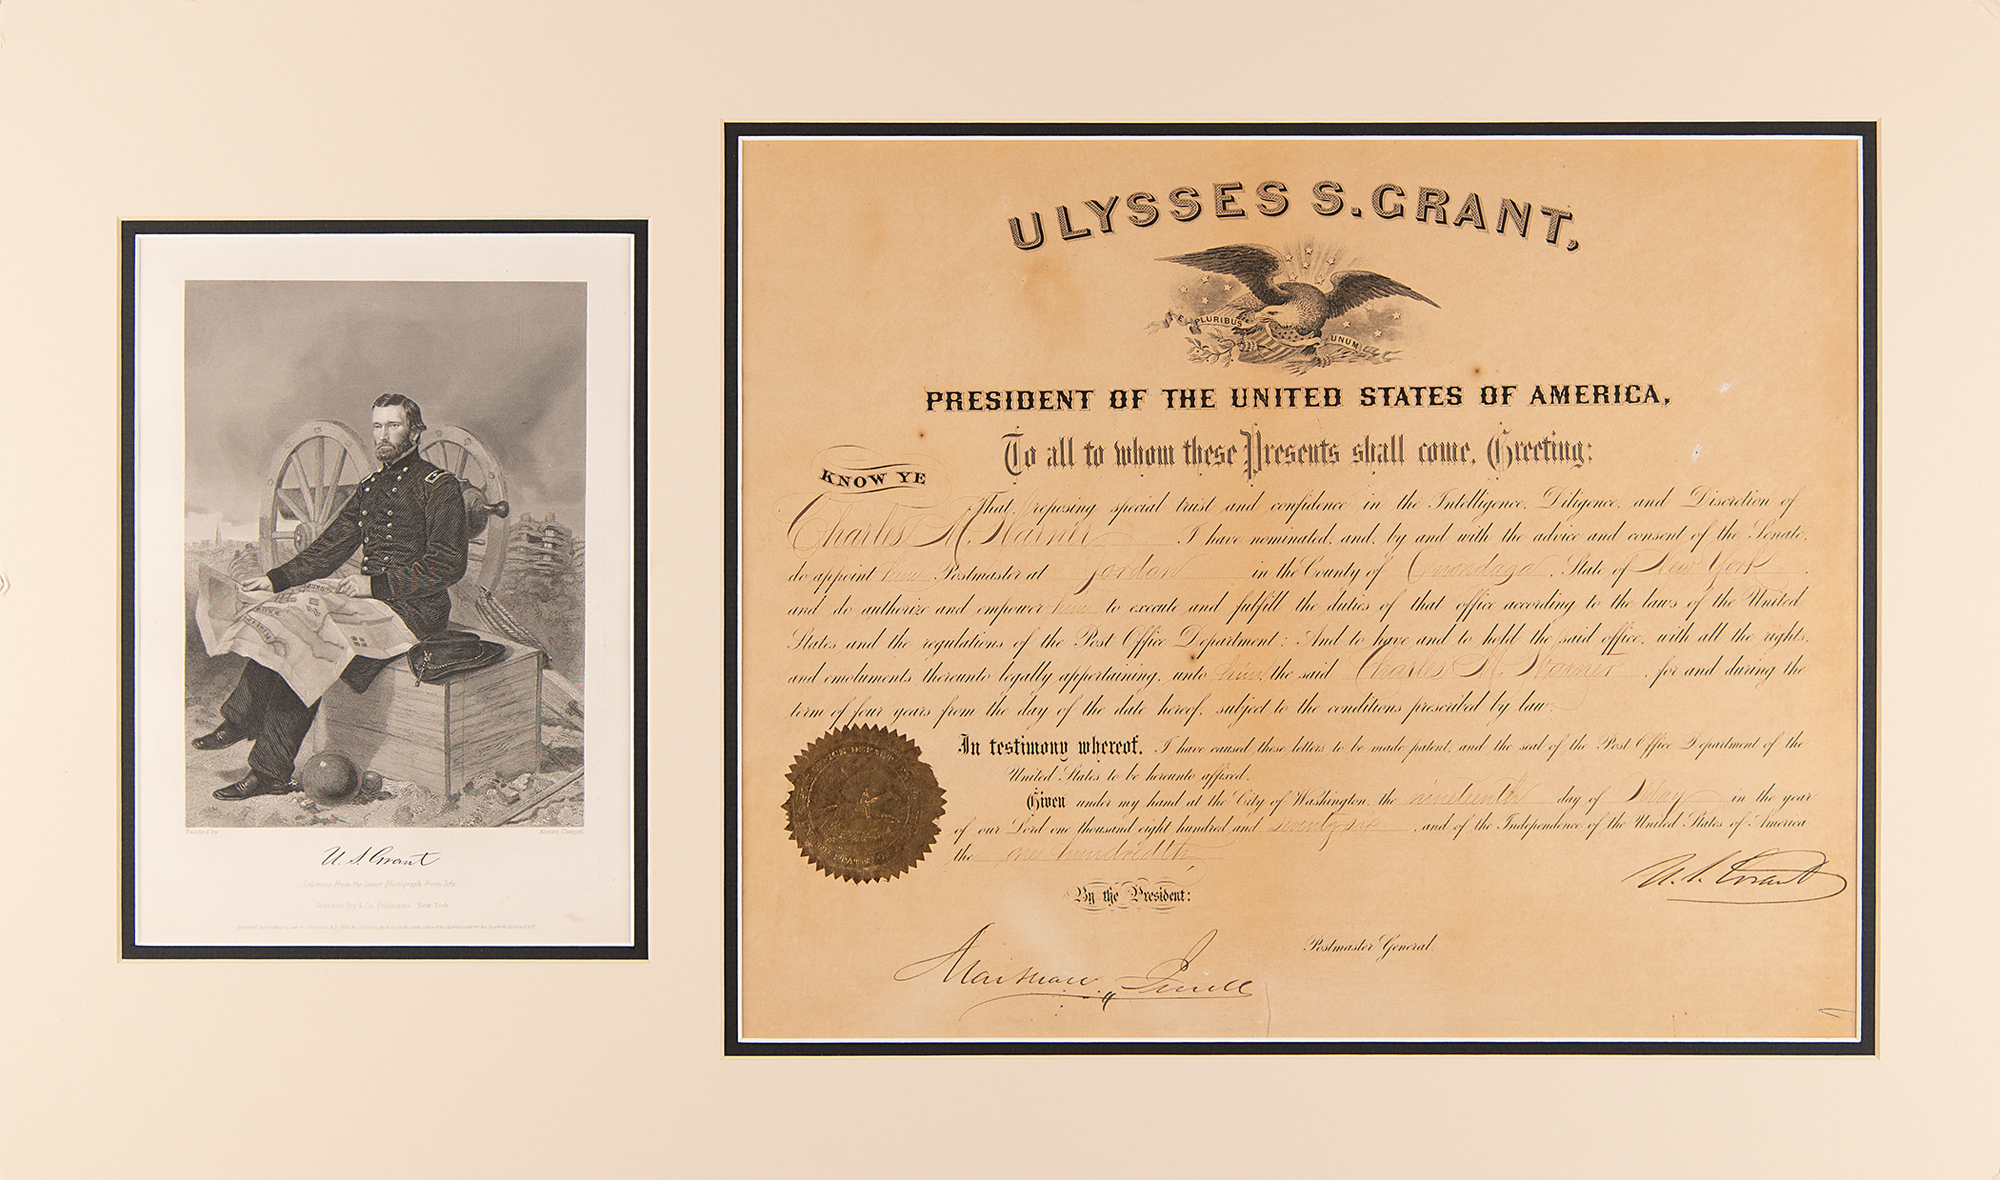 Painted by
Alonzo Chappel
U. S. Grant
Likeness from the latest Photograph from life.
Johnson, Fry & Co. Publishers, New York.
ULYSSES S. GRANT,
E PLURIBUS UNUM
PRESIDENT OF THE UNITED STATES OF AMERICA,
To all to whom these Presents shall come, Greeting:
KNOW YE
That, reposing special trust and confidence in the Intelligence, Diligence, and Discretion of
Charles M. Warner I have nominated, and, by and with the advice and consent of the Senate,
do appoint him Postmaster at Jordan in the County of Onondaga, State of New York,
and do authorize and empower him to execute and fulfill the duties of that office according to the laws of the United
States and the regulations of the Post Office Department: And to have and to hold the said office, with all the rights,
and emoluments thereunto legally appertaining, unto him, the said Charles M. Warner, for and during the
term of four years from the day of the date hereof, subject to the conditions prescribed by law.
In testimony whereof, I have caused these letters to be made patent, and the seal of the Post Office Department of the
United States to be hereunto affixed.
Given under my hand at the City of Washington, the nineteenth day of May in the year
of our Lord one thousand eight hundred and seventy six, and of the Independence of the United States of America
the one hundredth
U. S. Grant
By the President:
Postmaster General.
Marshall Jewell